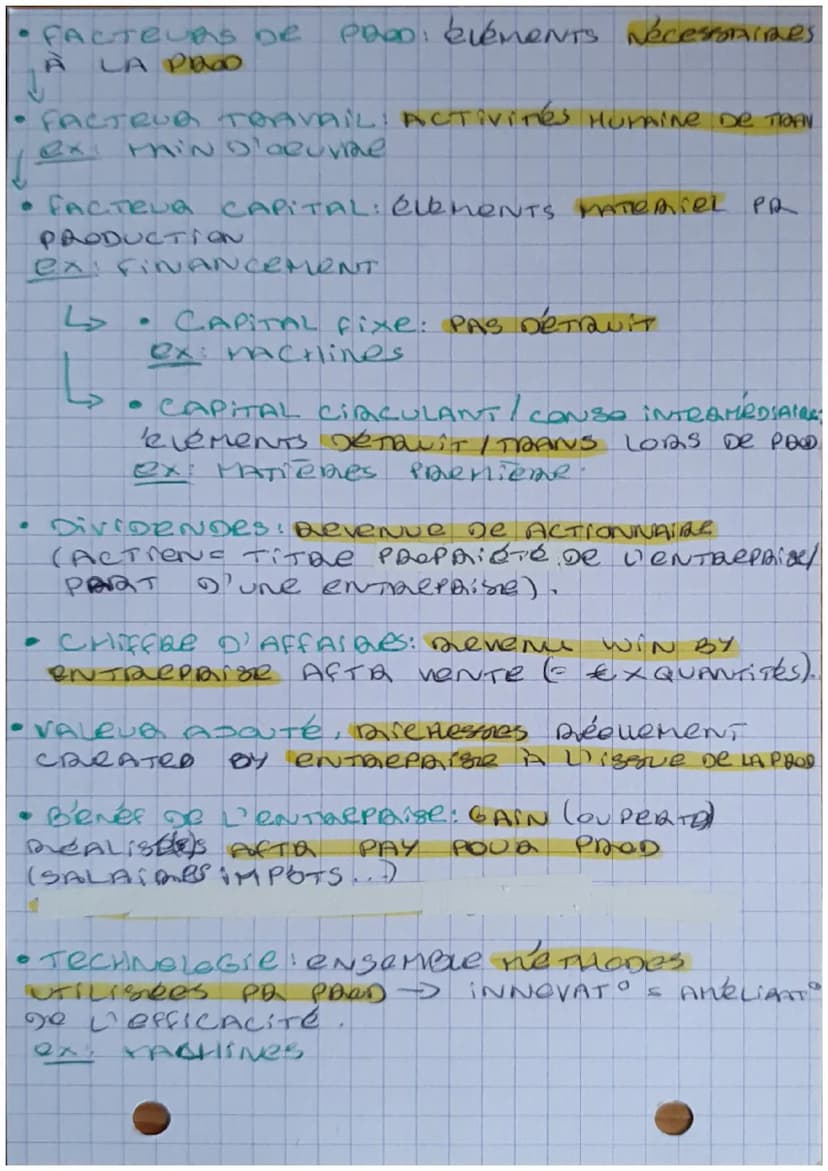 • FACTEURS DE PROD : ÉLÉMENTS NÉCESSAIRES
À LA PROD
• FACTEUR TRAVAIL : ACTIVITÉS HUMAINE DE TRAV
ex : MAIN D'OEUVRE
• FACTEUR CAPITAL : ÉLÉMENTS MATERIEL PR
PRODUCTION
ex : FINANCEMENT
↳ • CAPITAL FIXE : PAS DÉTRUIT
ex : MACHINES
↳ • CAPITAL CIRCULANT / CONSO INTERMÉDIAIRE :
ÉLÉMENTS DÉTRUIT / TRANS LORS DE PROD
ex : MATIÈRES PREMIÈRE.
• DIVIDENDES : REVENUE DE ACTIONNAIRE
(ACTION = TITRE PROPRIÉTÉ DE L'ENTREPRISE/
PART D'UNE ENTREPRISE).
• CHIFFRE D'AFFAIRES : REVENU WIN BY
ENTREPRISE AFTR VENTE (= € X QUANTITÉS).
• VALEUR AJOUTÉ, RICHESSES RÉELLEMENT
CREATED BY ENTREPRISE À L'ISSUE DE LA PROD
• BÉNÉF DE L'ENTREPRISE : GAIN (OU PERTE)
RÉALISÉ(S) AFTR PAY POUR PROD
(SALAIRES IMPÔTS...)
• TECHNOLOGIE : ENSEMBLE MÉTHODES
UTILISÉES PR PROD → INNOVAT° = AMÉLIORAT°
DE L'EFFICACITÉ.
ex : MACHINES